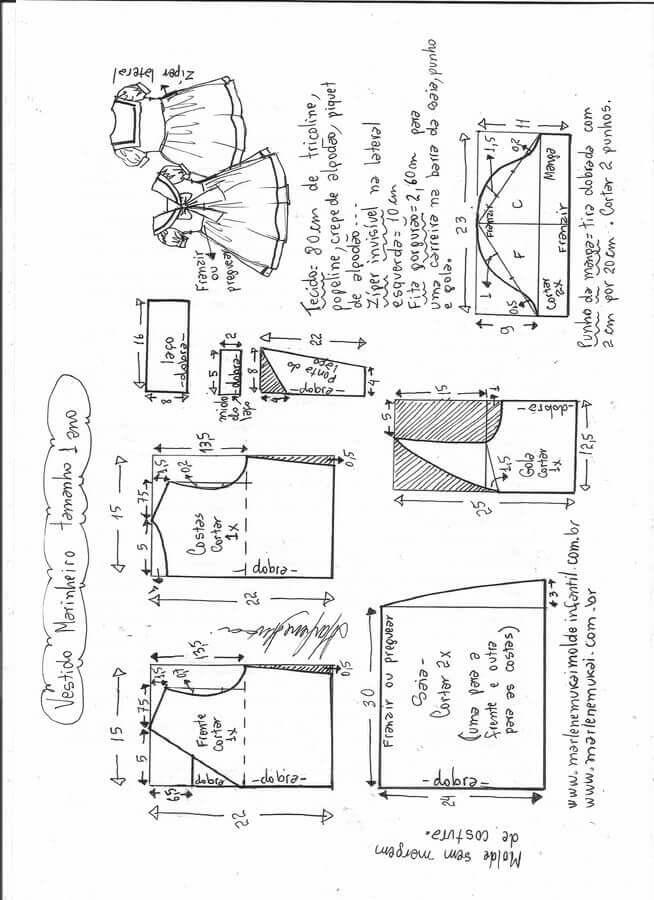 Vestido Marinheiro tamanho 1 ano
Zíper lateral
Franzir
ou
preguear
Tecido: 80cm de tricoline,
popeline, crepe de algodão, piquet
de algodão...
Zíper invisível na lateral
esquerda = 10cm
Fita gorgurão = 2,60cm para
uma carreira na barra da saia, punho
e gola.
15
5
7,5
1,5
0,2
13,5
Frente
Cortar
1x
6,5
dobra
22
-dobra-
0,5
15
5
7,5
1,5
0,2
13,5
1
Costas
Cortar
1x
22
-dobra-
0,5
16
8
laço
-dobra-
5
2
dobra
miolo
do
laço
8
22
4
4
ponta do
laço
-dobra-
23
9
11
1
1,5
0,5
0,2
Franzir
F
C
Cortar
2x
Franzir
Manga
Punho da manga = tira dobrada com
2cm por 20cm. Cortar 2 punhos.
30
Franzir ou preguear
Saia-
Cortar 2x
(uma para a
frente e outra
para as costas)
24
-dobra-
3
5
15
1
1,5
Gola
Cortar
1x
-dobra-
25
12,5
Molde sem margem
de costura.
www.marlenemukaimoldeinfantil.com.br
www.marlenemukai.com.br